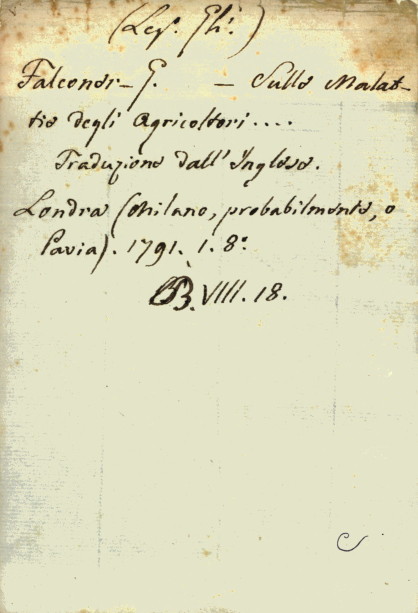 (Leg. Gli.)
Falconer - G. - Sulle Malat-
tie degli Agricoltori ....
Traduzione dall' Inglese.
Londra (Milano, probabilmente, o
Pavia). 1791. 1. 8°.
B. VIII. 18.